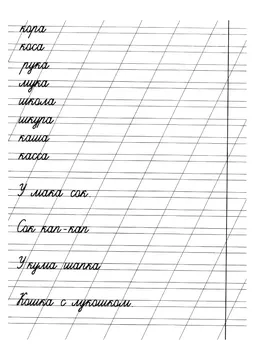 кора
коса
рука
мука
школа
шкура
каша
касса
У мака сок.
Сок кап-кап
У кума шапка
Кошка с лукошком.